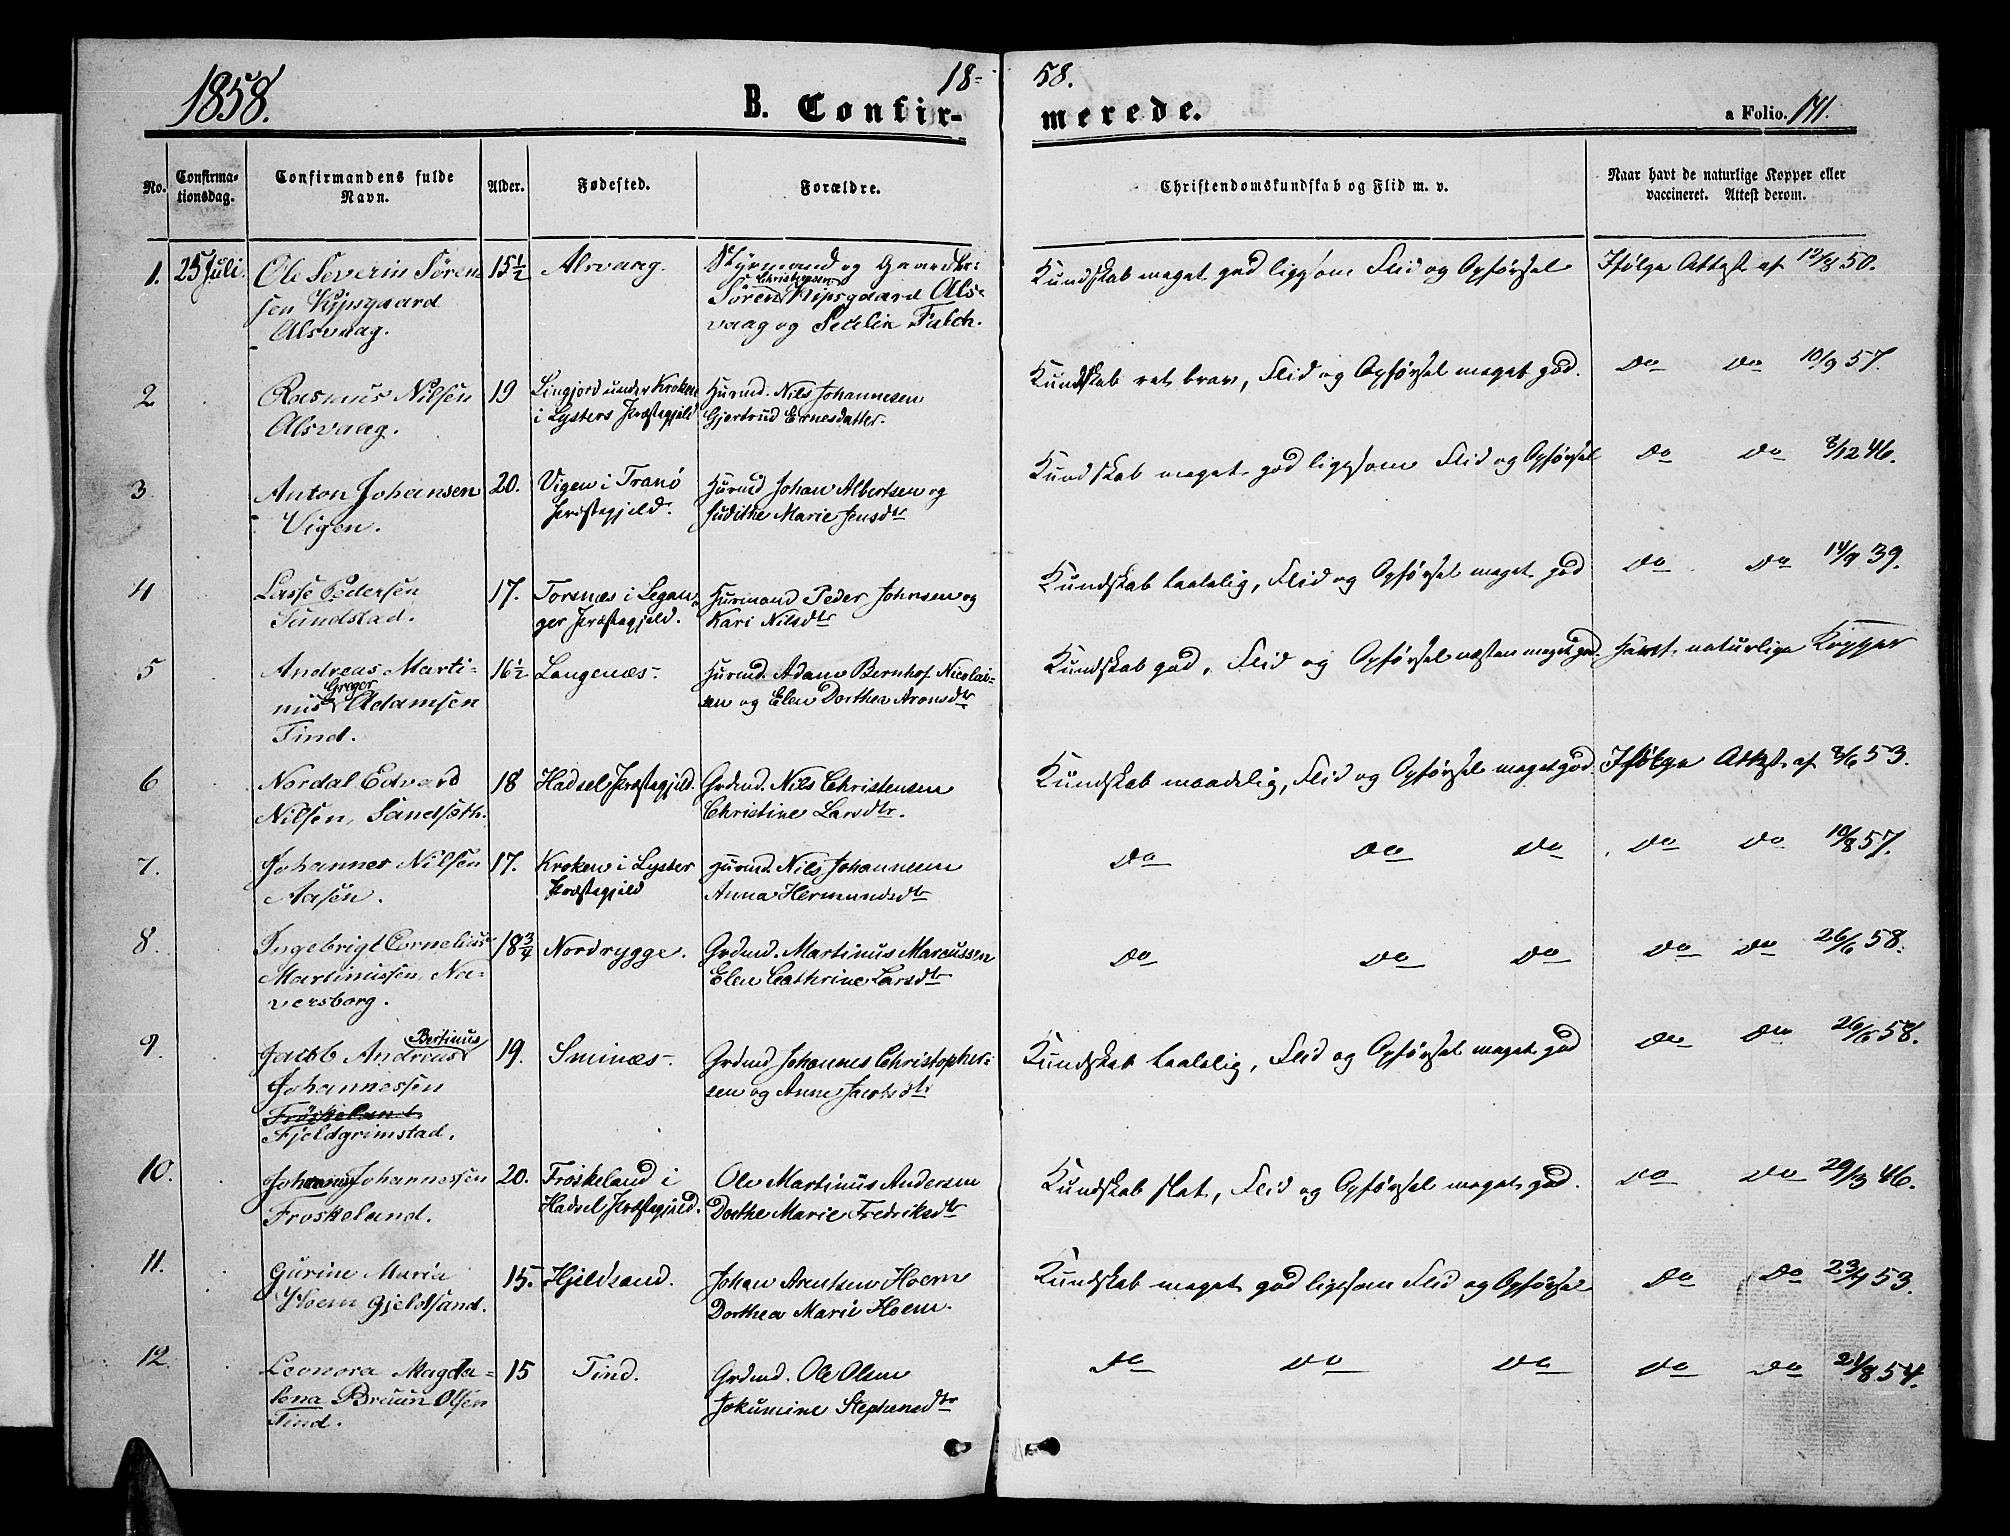 1858.
18-
58.
B. Confir-
merede.
a Folio. 141.
No.
Confirma-
tionsdag.
Confirmandens fulde
Navn.
Alder.
Fødested.
Forældre.
Christendomskundskab og Flid m. v.
Naar havt de naturlige Kopper eller
vaccineret. Attest derom.
1. 25 Juli. Ole Severin Søren 15 1/2 Alsvaag. Styrmand og Gaardbr.
sen Kijpsgaard Christensen Søren Kipsgaard Als-
Alsvaag. vaag og Falch.
Kundskab meget god ligesom Flid og Opførsel Ifølge Attest af 12/8 50.
2 Rasmus Nilsen 19 under Kroken Hurmd. Nils Johannesen
Alsvaag. i Lysters Præstegjeld Gjertrud Ernesdatter.
Kundskab ret brav, Flid og Opførsel meget god. do do 10/9 57.
3. Anton Johansen 20. Vigen i Tranø Hurmd Johan Albertsen og
Vigen. Præstegjeld. Judithe Marie Jensdtr
Kundskab meget god ligesom Flid og Opførsel do do 8/12 46.
4 Lasse Pedersen 17. Torsnæs i Legan- Hurmand Peder Johnsen og
Tundstad. ger Præstegjeld. Kari Nilsdtr
Kundskab taalelig, Flid og Opførsel meget god do do 14/9 39.
5 Andreas Marti- 16 1/2 Langenæs- Hurmd. Adam Bernhof Nicolai-
nus Greger Adamsen sen og Elen Dorthea Aronsdtr
Tind.
Kundskab god, Flid og Opførsel næsten meget god. Havt naturlige Kopper
6 Nordal Edvard 18 Hadsel Præstegjeld. Grdmd. Nils Christensen
Nilsen, Sandsøth. Christine Larsdtr.
Kundskab maadelig, Flid og Opførsel meget god. Ifølge Attest af 8/6 53.
7. Johannes Nilsen 17. Kroken i Lyster Hurmd. Nils Johannesen
Aasen. Præstegjeld Anna Hermundsdtr
do do do do do 10/8 57.
8. Ingebrigt Cornelius 18 3/4 Nordrygge. Grdmd. Martinus Marcussen
Martinussen Na- Elen Cathrine Larsdtr
versborg.
do do do do do 26/6 58.
9. Jacob Andreas Bertinus 19. Sminæs- Grdmd Johannes Christopher-
Johannessen sen og Anne Jacobsdtr
Frøskeland.
Fjeldgrimstad.
Kundskab taalelig, Flid og Opførsel meget god do do 26/6 58.
10. Johannes Johannessen 20. Frøskeland i Ole Martinus Andersen
Froskeland. Hadsel Præstegjeld. Dorthe Marie Fredriksdtr
Kundskab slet, Flid og Opførsel meget god. do do 29/3 46.
11. Gurine Maria 15. Hjeldsand. Johan Arentsen Hoem
Hoem Gjeldsand. Dorthea Marie Hoem.
Kundskab meget god ligesom Flid og Opførsel do do 23/7 53.
12. Leonora Magda- 15 Tind. Grdmd. Ole Olsen
lena Bruun Olsen Jokumine Stephensdtr
Tind.
do do do do do 21/8 54.